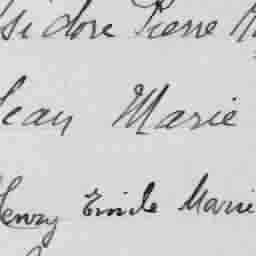 Isidore Pierre
Jean Marie
Henry Emile Marie